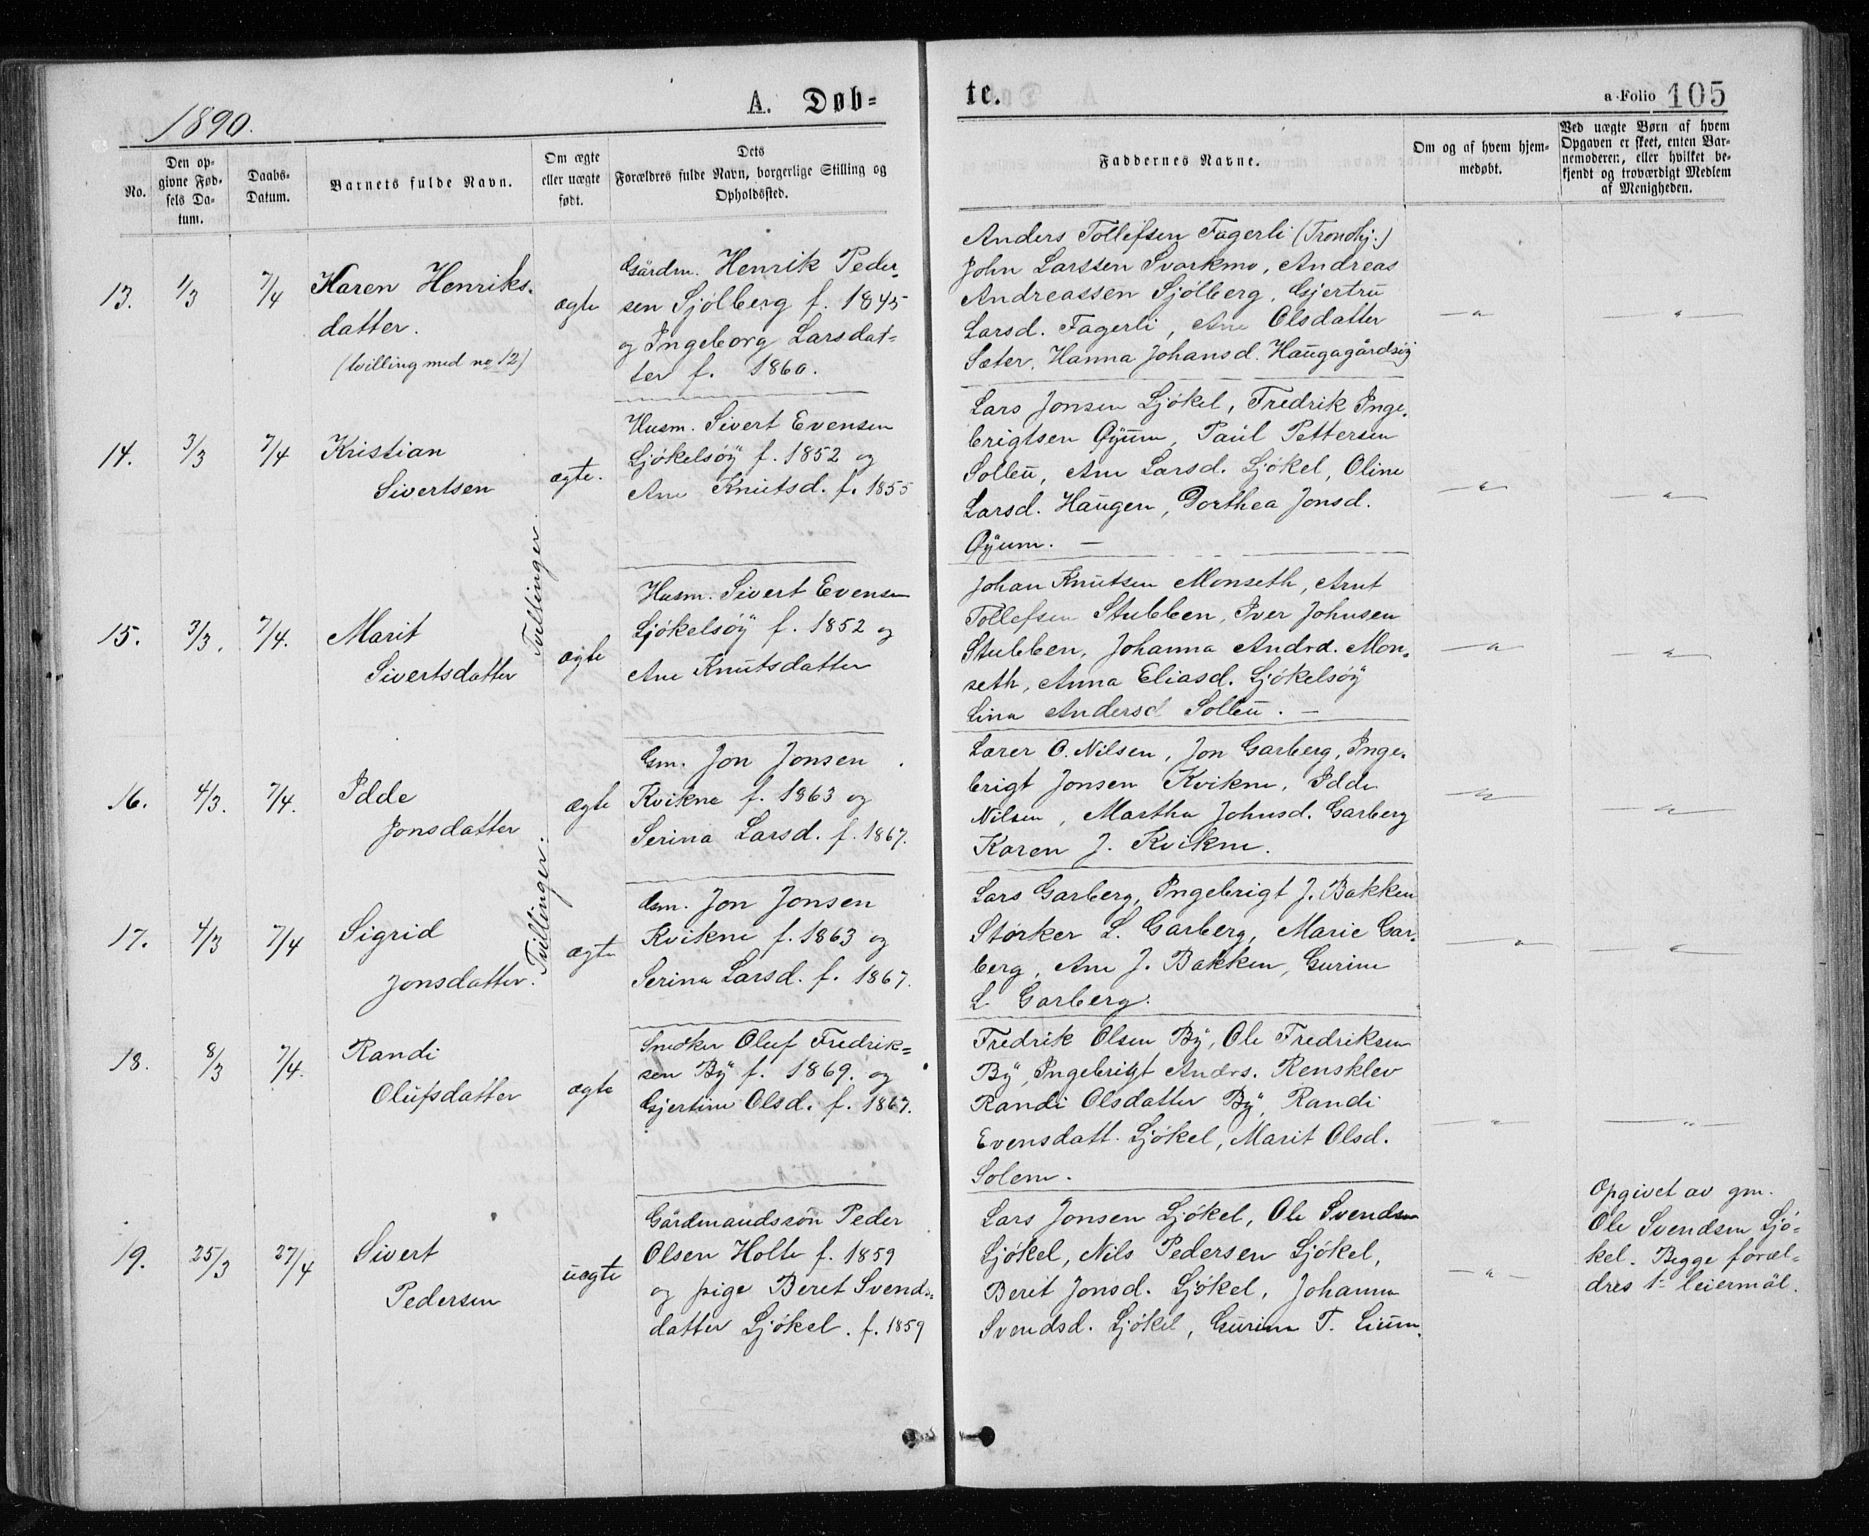 1890.
A. Døb-
te.
a Folio 105
No.
Den op-
givne Fød-
sels Da-
tum.
Daabs-
Datum.
Barnets fulde Navn.
Om ægte
eller uægte
født.
Dets
Forældres fulde Navn, borgerlige Stilling og
Opholdssted.
Faddernes Navne.
Om og af hvem hjem-
medøbt.
Ved uægte Børn af hvem
Opgaven er skeet, enten Bar-
nemoderen, eller hvilket be-
kjendt og troværdigt Medlem
af Menigheden.
13.
1/3
7/4
Karen Henriks-
datter.
(tvilling med no 12)
ægte
Gårdm. Henrik Peder-
sen Sjölberg f. 1845
og Ingeborg Larsdat-
ter f. 1860.
Anders Tollefsen Fagerli (Trondhj.)
John Larssen Svorkmo, Andreas
Andreassen Sjölberg, Gjertru
Larsd. Fagerli, Ane Olsdatter
Sæter, Hanna Johansd. Haugagårdsöj
— " —
— " —
14.
3/3
7/4
Kristian
Sivertsen
ægte.
Husm. Sivert Evensen
Ljökelsöy f. 1852 og
Ane Knutsd. f. 1855
Lars Jonsen Ljökel, Fredrik Inge-
brigtsen Öyum, Paul Pettersen
Solleu, Ane Larsd. Ljökel, Oline
Larsd. Haugen, Dorthea Jonsd.
Öyum. —
— " —
— " —
Tvillinger.
15.
3/3.
7/4.
Marit
Sivertsdatter
ægte
Husm. Sivert Evensen
Ljökelsöy f. 1852 og
Ane Knutsdatter
Johan Knutsen Monseth, Arnt
Tollefsen Stubben, Iver Johnsen
Stubben, Johanna Andrd. Mon-
seth, Anna Eliasd. Ljökelsöy
Lina Andersd Solleu. —
— " —
— " —
16.
4/3.
7/4.
Idde
Jonsdatter
ægte
Gm. Jon Jonsen
Kvikne f. 1863 og
Serina Larsd. f. 1867.
Lærer O. Nilsen, Jon Garberg, Inge-
brigt Jonsen Kvikne, Idde
Nilsen, Martha Johnsd. Garberg
Karen J. Kvikne.
— " —
— " —
Tvillinger.
17.
4/3
7/4
Sigrid
Jonsdatter.
ægte
Gm. Jon Jonsen
Kvikne f. 1863 og
Serina Larsd. f. 1867.
Lars Garberg, Ingebrigt J. Bakken
Störker L. Garberg, Marie Gar-
berg, Ane J. Bakken, Gurine
L. Garberg.
— " —
— " —
18.
8/3
7/4.
Randi
Olufsdatter
ægte
Snedker Oluf Fredrik=
sen By f. 1869. og
Gjertine Olsd. f. 1867.
Fredrik Olsen By, Ole Fredriksen
By, Ingebrigt Andrs. Rensklev
Randi Olsdatter By, Randi
Evensdatt. Ljökel, Marit Olsd.
Solem.
— " —
— " —
19.
25/3
27/4
Sivert
Pedersen
uægte
Gårdmandssön Peder
Olsen Holte f. 1859
og pige Beret Svends-
datter Ljökel. f. 1859
Lars Jonsen Ljökel, Ole Svendsen
Ljökel, Nils Pedersen Ljökel,
Berit Jonsd. Ljökel, Johanna
Svendsd. Ljökel, Gurine T. Lium.
— " —
Opgivet av gm.
Ole Svendsen Ljö-
kel. Begge foræl-
dres 1ste leiermål.